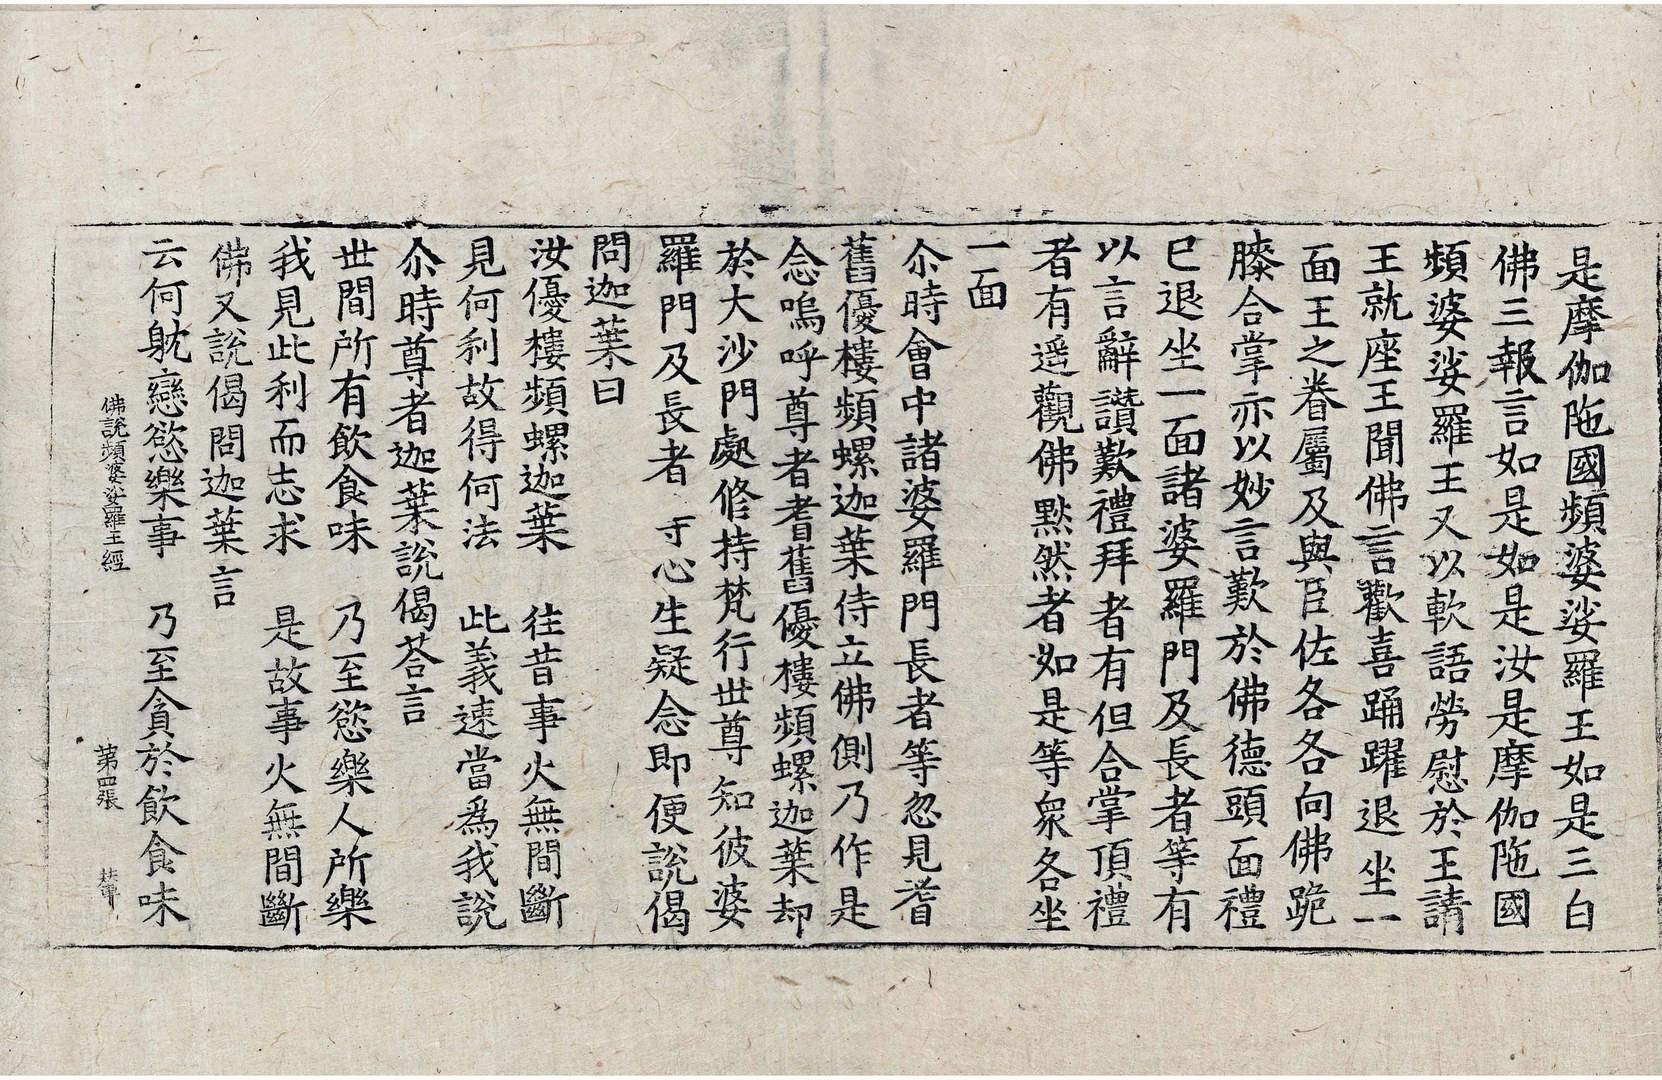 是摩伽陁國頻婆娑羅王如是三白
佛三報言如是如是汝是摩伽陁國
頻婆娑羅王又以軟語勞慰於王請
王就座王聞佛言歡喜踊躍退坐一
面王之眷屬及與臣佐各各向佛跪
膝合掌亦以妙言歎於佛德頭面禮
已退坐一面諸婆羅門及長者等有
以言辭讃歎禮拜者有但合掌頂禮
者有遥觀佛黙然者如是等衆各坐
一面
尒時會中諸婆羅門長者等忽見耆
舊優樓頻螺迦葉侍立佛側乃作是
念嗚呼尊者耆舊優樓頻螺迦葉却
於大沙門處修持梵行世尊知彼婆
羅門及長者 心生疑念即便說偈
問迦葉曰
汝優樓頻螺迦葉 往昔事火無間斷
見何利故得何法 此義速當爲我說
尒時尊者迦葉說偈荅言
世間所有飲食味 乃至慾樂人所樂
我見此利而志求 是故事火無間斷
佛又說偈問迦葉言
云何躭戀慾樂事 乃至貪於飲食味
佛說頻婆娑羅王經 第四張